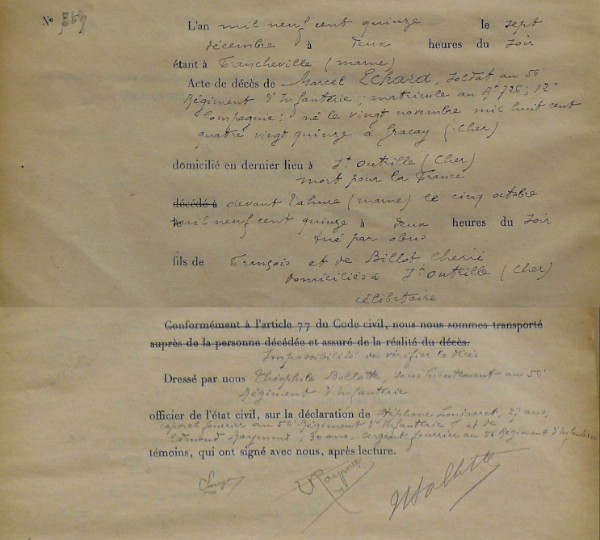 N°
L'an mil neuf cent quinze le sept
décembre à deux heures du soir
étant à Francheville (marne)
Acte de décès de Marcel Echard, soldat au
Régiment d'Infanterie; matricule au
Compagnie; né le vingt novembre mil huit cent
quatre vingt quinze à Graçay (Cher)
domicilié en dernier lieu à St Outrille (Cher)
mort pour la France
décédé à devant Tahure (marne) le cinq octobre
mil neuf cent quinze à deux heures du soir
tué par obus
fils de François et de Billot
domiciliés à St Outrille (Cher)
célibataire
Conformément à l'article 77 du Code civil, nous nous sommes transporté
auprès de la personne décédée et assuré de la réalité du décès.
Impossibilité de vérifier le décès
Dressé par nous Théophile sous lieutenant au
Régiment d'Infanterie
officier de l'état civil, sur la déclaration de Stéphane 27 ans,
caporal fourrier au Régiment d'Infanterie et de
Edmond 30 ans, sergent fourrier au Régiment d'Infanterie
témoins, qui ont signé avec nous, après lecture.